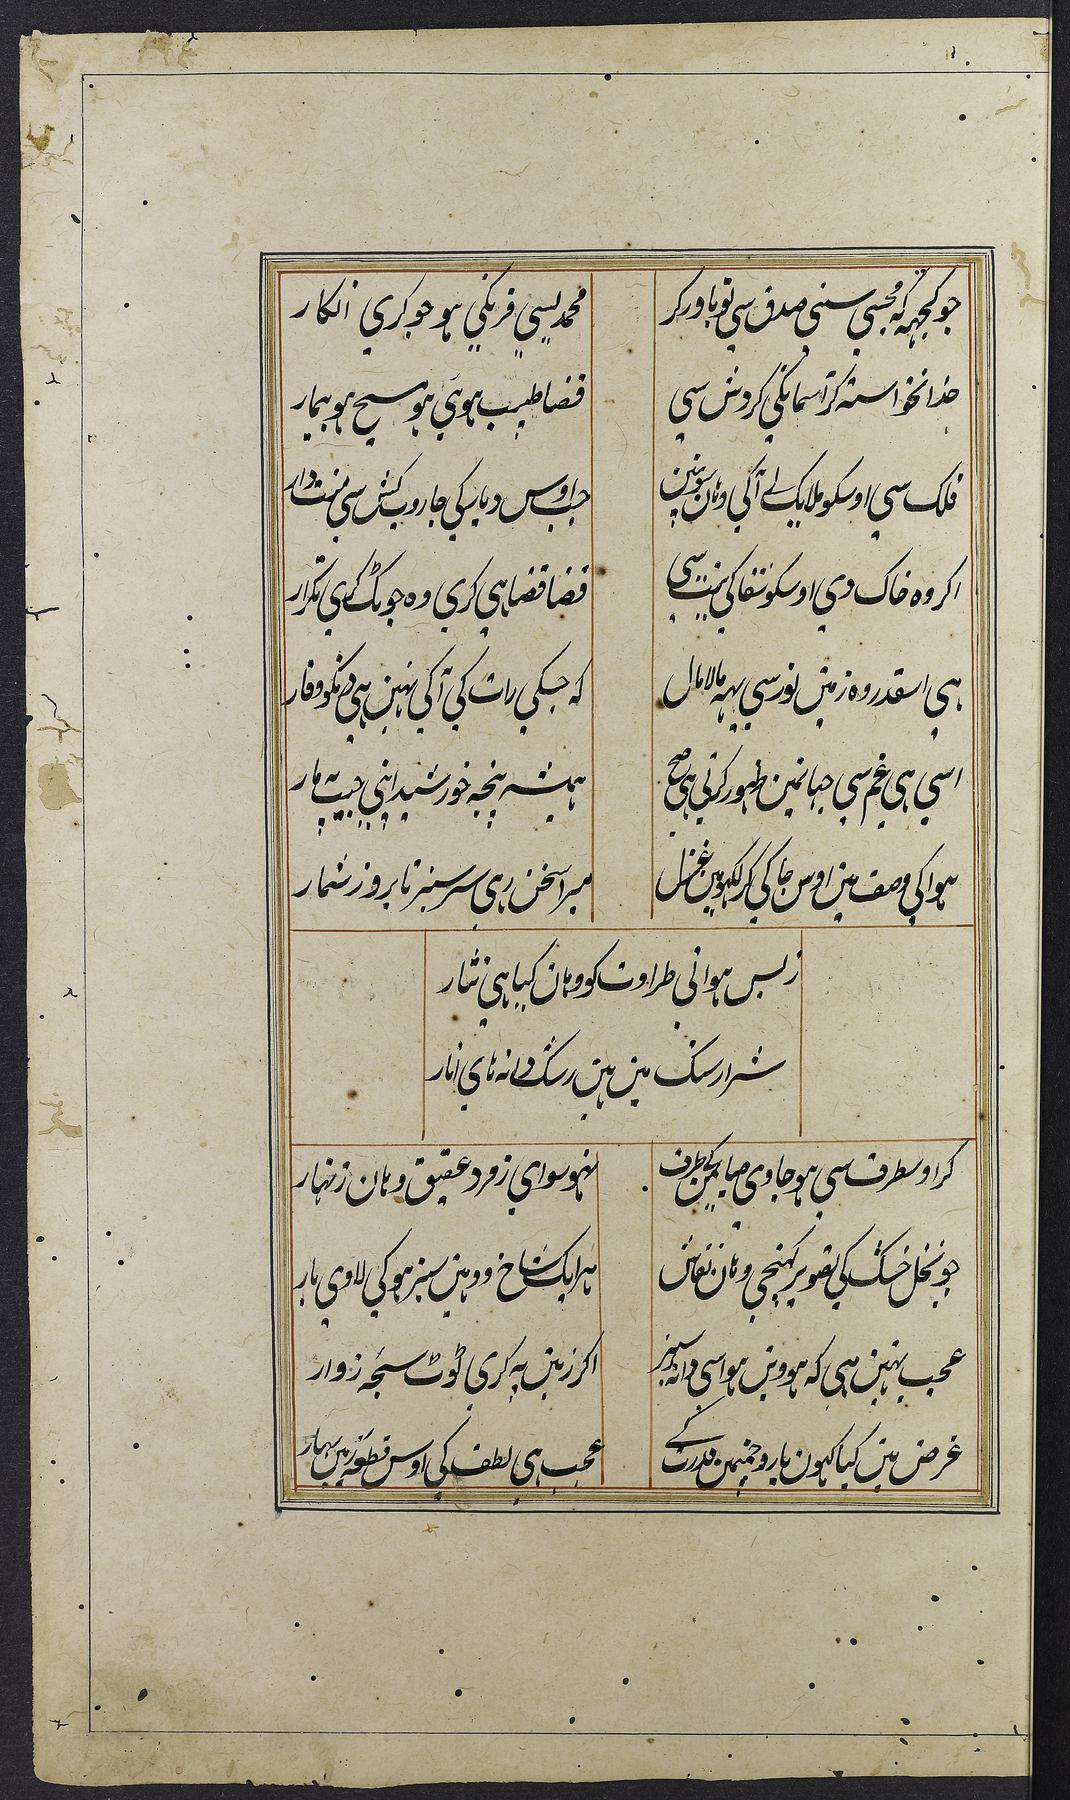 جو کجهہ کہ مجسی سنی صدق سی تو باور کر
محمدیسی فرنکی ہو جو کری انکار
خدانخواستہ کر آسمانکی کردش سی
قضا طبیب ہوئی ہو مسیح ہو بیمار
فلک سی اوسکو ملایک لے آکی وہان سونپین
جب اوس دیار کی جاروب کش سی منت دار
اکر وہ خاک دی اوسکو شفا کی نیت سی
قضا قضا ہی کری وہ جو ٹک کری تکرار
ہی اسقدر وہ زمین نور سی یہہ مالامال
کہ جسکی رات کی آکی نہین ہی دنکو وقار
اسی ہی غم سی جہانمین ظہور کرتی ہی صبح
ہمیشہ پنجہ خورشید اپنی جیب پہ مار
ہوا کی وصف مین اوس جا کی کر لکہون مین غزل
میرا سخن رہی سرسبز تا بروز شمار
زبس ہوانی طراوت کو وہان کیا ہی نثار
شرار سنک مین ہین رشک دانہ ہای انار
کر اوسطرف سی ہو جاوی صبا یمن کی طرف
نہو سوای زمرد عقیق وہان زنہار
جو نخل خشک کی تصویر کهنچی وہان نقاش
ہر ایک شاخ ووہین سبز ہو کی لاوی بار
عجب نہین ہی کہ ہووین ہوا سی دانہ سبز
اکر زمین پہ کری ٹوٹ سبحہ زوار
غرض مین کیا کہون یارو چمنمین قدرت کے
عجب ہی لطف کی اوس قطعہ زمین بہار